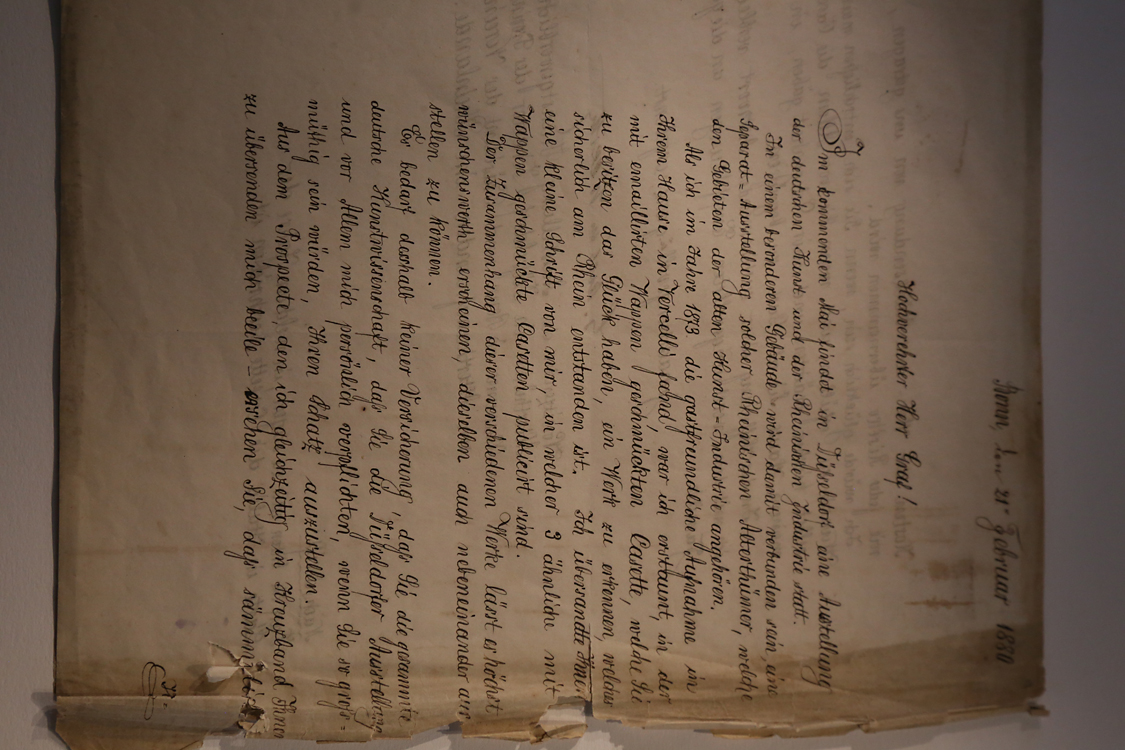 Bonn, den 21ⁿ Februar 1880
Hochverehrter Herr Graf!
Im kommenden Mai findet in Düsseldorf eine Ausstellung
der deutschen Kunst und der Rheinischen Industrie statt.
In einem besonderen Gebäude wird damit verbunden sein, eine
Separat-Ausstellung solcher Rheinischen Alterthümer, welche
den Gebieten der alten Kunst-Industrie angehören.
Als ich im Jahre 1873 die gastfreundliche Aufnahme in
Ihrem Hause in Vercelli fand, war ich erstaunt, in der
mit emaillirten Wappen geschmückten Casette, welche Sie
zu besitzen das Glück haben, ein Werk zu erkennen, welches
sicherlich am Rhein entstanden ist. Ich übersandte Ihnen
eine kleine Schrift von mir, in welcher 3 ähnliche mit
Wappen geschmückte Casetten publicirt sind.
Der Zusammenhang dieser verschiednen Werke lässt es höchst
wünschenswerth erscheinen, dieselben auch nebeneinander aus
stellen zu können.
Es bedarf deshalb keiner Versicherung, daß Sie die gesammte
deutsche Kunstwissenschaft, daß Sie die Düsseldorfer Ausstellung
und vor Allem mich persönlich verpflichten, wenn Sie so groß=
müthig sein würden, Ihren Schatz auszustellen.
Aus dem Prospecte, den ich gleichzeitig in Kreuzband Ihnen
zu übersenden mich beeile – ersehen Sie, daß sämmtliche